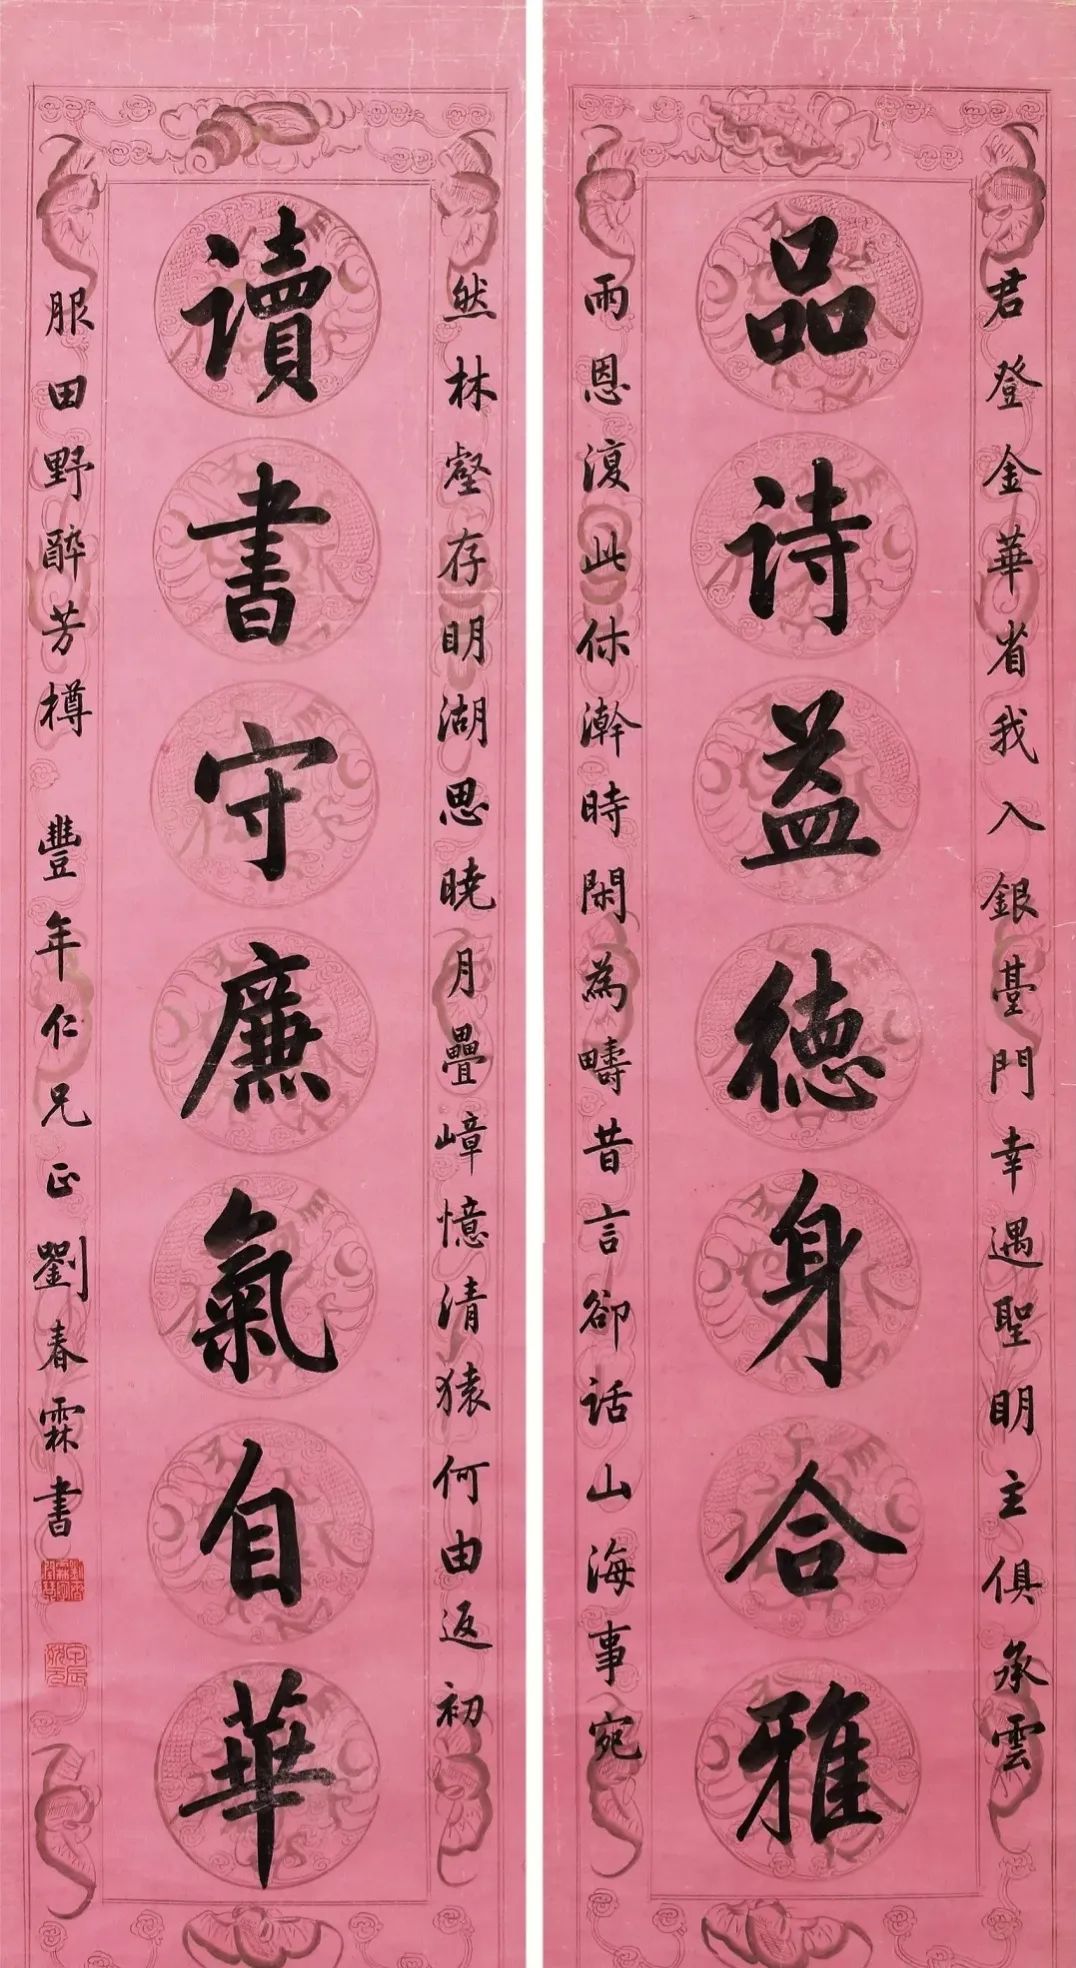 君登金華省我入銀臺門幸遇聖明主俱承雲
品詩益德身合雅
雨恩復此休澣時閑為疇昔言卻話山海事宛
然林壑存明湖思曉月疊嶂憶清猿何由返初
讀書守廉氣自華
服田野醉芳樽 豐年仁兄正劉春霖書